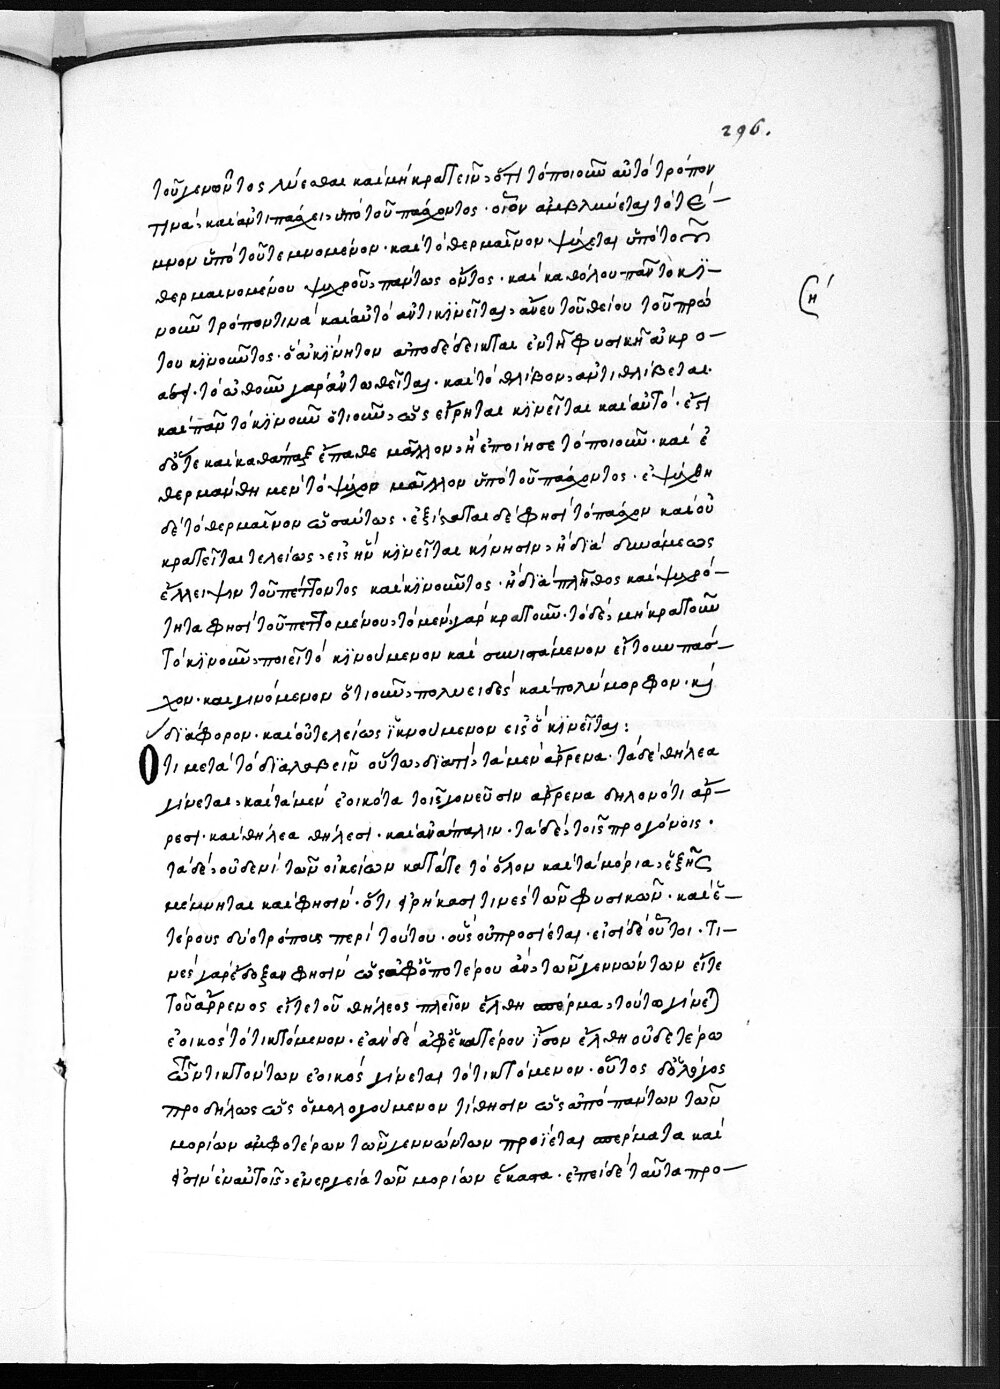 296.
τοῦ γεννῶντος λύεσθαι καὶ μὴ κρατεῖν, ὅτι τὸ ποιοῦν αὐτὸ τρόπον
τινὰ, καὶ ἀντιπάσχει, ὑπὸ τοῦ πάσχοντος. οἷον ἀμβλύνεται τὸ τέ-
μνον ὑπὸ τοῦ τεμνομένου. καὶ τὸ θερμαῖνον ψύχεται ὑπὸ τοῦ
θερμαινομένου ψυχροῦ, πάντως ὄντος. καὶ καθόλου πᾶν τὸ κϊ-
νοῦν τρόπον τινὰ καὶ αὐτὸ ἀντικϊνεῖται, ἄνευ τοῦ θείου τοῦ πρώ
του κϊνοῦντος. ὃ ἀκίνητον ἀποδέδεικται ἐν τῇ φυσικῇ ἀκρο-
άσει. τὸ ὠθοῦν γὰρ ἀντωθεῖται. καὶ τὸ θλίβον, ἀντιθλίβεται.
καὶ πᾶν τὸ κϊνοῦν ὁτιοῦν, ὡς εἴρηται κϊνεῖται καὶ αὐτό. ἔστι
δ' ὅτε καὶ καθάπαξ ἔπαθε μᾶλλον, ἢ ἐποίησε τὸ ποιοῦν. καὶ ἐ
θερμάνθη μὲν τὸ ψῦχον μᾶλλον ὑπὸ τοῦ πάσχοντος. ἐψύχθη
δὲ τὸ θερμαῖνον ὡσαύτως. ἐξίσταται δὲ φησὶ τὸ πάσχον καὶ οὐ
κρατεῖται τελείως, εἰς ἣν κϊνεῖται κίνησιν, ἢ διὰ δυνάμεως
ἔλλειψιν τοῦ πέττοντος καὶ κϊνοῦντος. ἢ διὰ πλῆθος καὶ ψυχρό-
τητα φησὶ τοῦ πεττομένου, τὸ μὲν γὰρ κρατοῦν. τὸ δὲ, μὴ κρατοῦν
τὸ κϊνοῦν, ποιεῖ τὸ κϊνούμενον καὶ συνιστάμενον εἴτουν πάσ-
χον. καὶ γινόμενον ὁτιοῦν, πολυειδὲς καὶ πολύμορφον. καὶ
διάφορον. καὶ οὐ τελείως ἱκνούμενον εἰς ὃ κϊνεῖται:
Ὅτι μετὰ τὸ διαλαβεῖν οὕτω, διατί, τὰ μὲν ἄρρενα. τὰ δὲ θήλεα
γίνεται, καὶ τὰ μὲν ἐοικότα τοῖς γονεῦσιν ἄρρενα δηλονότι ἄρ-
ρεσι. καὶ θήλεα θήλεσι. καὶ ἀνάπαλιν. τὰ δὲ, τοῖς προγόνοις.
τὰ δὲ, οὐδενὶ τῶν οἰκείων κατά τε τὸ ὅλον καὶ τὰ μόρια, ἑξῆς
μέμνηται καὶ φησίν. ὅτι εἰρήκασί τινες τῶν φυσικῶν. καὶ ἑ-
τέρους δύο τρόπους περὶ τούτου. οὓς οὐ προσίεται. εἰσὶ δὲ οὗτοι. τι-
νὲς γὰρ ἔδοξαν φησὶν ὡς ἀφ' ὁποτέρου ἂν, τῶν γεννώντων εἴτε
τοῦ ἄρρενος εἴτε τοῦ θήλεος πλεῖον ἔλθῃ σπέρμα, τούτῳ γίνεται
ἐοικὸς τὸ τικτόμενον. ἐὰν δὲ ἀφ' ἑκατέρου ἴσον ἔλθῃ οὐδετέρῳ
τῶν τικτόντων ἐοικὸς γίνεται τὸ τικτόμενον. οὗτος δ' ὁ λόγος
προδήλως ὡς ὁμολογούμενον τίθησιν ὡς ἀπὸ πάντων τῶν
μορίων ἀμφοτέρων τῶν γεννώντων προΐεται σπέρματα καὶ
εἰσὶν ἐν αὐτοῖς, ἐνεργείᾳ τῶν μορίων ἕκαστα. ἐπεὶ δὲ ταῦτα προ-